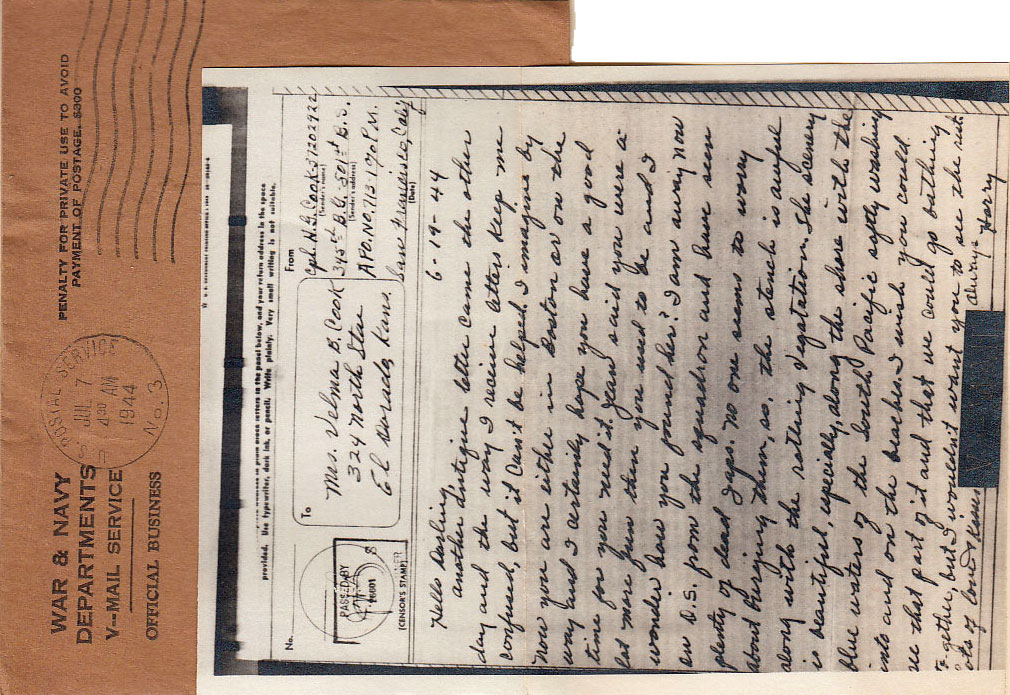 WAR & NAVY
DEPARTMENTS
V-MAIL SERVICE
OFFICIAL BUSINESS
PENALTY FOR PRIVATE USE TO AVOID
PAYMENT OF POSTAGE, $300
POSTAL SERVICE
JUL 7
430 AM
1944
No. 3
provided. Use typewriter, dark ink, or pencil. Write plainly. Very small writing is not suitable.
No.
PASSED BY
(CENSOR'S STAMP)
To
Mrs. Velma B. Cook
324 North Star
El Dorado, Kans.
From
Cpl. H.G. Cook 31202922
(Sender's name)
315st B.G. 501st B.S.
(Sender's address)
APO. No. 713-1 % P.M.
San Fransisco, Calif
(Date)
6-19-44
Hello Darling
another antique letter came the other
day and the way I receive letters keep me
confused, but it can't be helped. I imagine by
now you are either in Boston or on the
way and I certainly hope you have a good
time for you need it. Jean said you were a
lot more fun then you used to be and I
wonder how you found her? I am away now
on D.S. from the squadron and have seen
plenty of dead Japs. No one seems to worry
about burying them, so the stench is awful
along with the rotening vegatation. The scenery
is beautiful, especially, along the shore with the
blue waters of the South Pacific softly washing
into and on the beaches. I wish you could
see that part of it and that we could go bathing
to-gether, but I wouldn't want you to see the rest.
Lots of love & kisses always Harry